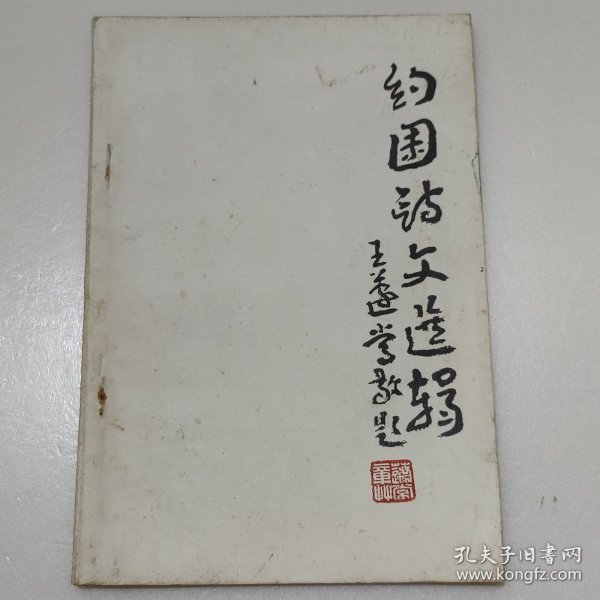 约园诗文选辑
王蘧常敬题
孔夫子旧书网
www.kongfz.com